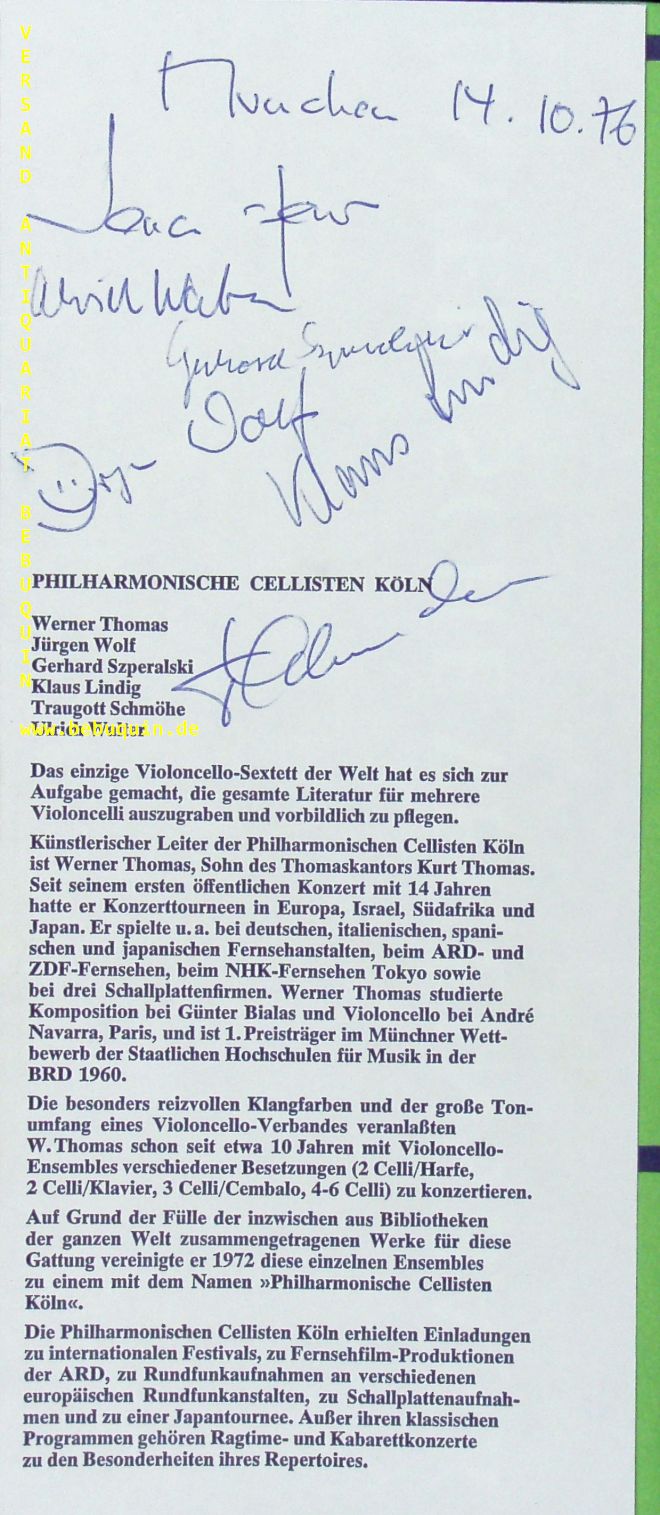 VERSAND ANTIQUARIAT BEBUQUIN
Muenchen 14.10.76
Ulrich
Gerhard Szperalski
Wolf
Klaus Lindig
PHILHARMONISCHE CELLISTEN KÖLN
Werner Thomas
Jürgen Wolf
Gerhard Szperalski
Klaus Lindig
Traugott Schmöhe
Ulrich Walter
www.bebuquin.de
Das einzige Violoncello-Sextett der Welt hat es sich zur
Aufgabe gemacht, die gesamte Literatur für mehrere
Violoncelli auszugraben und vorbildlich zu pflegen.
Künstlerischer Leiter der Philharmonischen Cellisten Köln
ist Werner Thomas, Sohn des Thomaskantors Kurt Thomas.
Seit seinem ersten öffentlichen Konzert mit 14 Jahren
hatte er Konzerttourneen in Europa, Israel, Südafrika und
Japan. Er spielte u. a. bei deutschen, italienischen, spani-
schen und japanischen Fernsehanstalten, beim ARD- und
ZDF-Fernsehen, beim NHK-Fernsehen Tokyo sowie
bei drei Schallplattenfirmen. Werner Thomas studierte
Komposition bei Günter Bialas und Violoncello bei André
Navarra, Paris, und ist 1. Preisträger im Münchner Wett-
bewerb der Staatlichen Hochschulen für Musik in der
BRD 1960.
Die besonders reizvollen Klangfarben und der große Ton-
umfang eines Violoncello-Verbandes veranlaßten
W. Thomas schon seit etwa 10 Jahren mit Violoncello-
Ensembles verschiedener Besetzungen (2 Celli/Harfe,
2 Celli/Klavier, 3 Celli/Cembalo, 4-6 Celli) zu konzertieren.
Auf Grund der Fülle der inzwischen aus Bibliotheken
der ganzen Welt zusammengetragenen Werke für diese
Gattung vereinigte er 1972 diese einzelnen Ensembles
zu einem mit dem Namen »Philharmonische Cellisten
Köln«.
Die Philharmonischen Cellisten Köln erhielten Einladungen
zu internationalen Festivals, zu Fernsehfilm-Produktionen
der ARD, zu Rundfunkaufnahmen an verschiedenen
europäischen Rundfunkanstalten, zu Schallplattenaufnah-
men und zu einer Japantournee. Außer ihren klassischen
Programmen gehören Ragtime- und Kabarettkonzerte
zu den Besonderheiten ihres Repertoires.